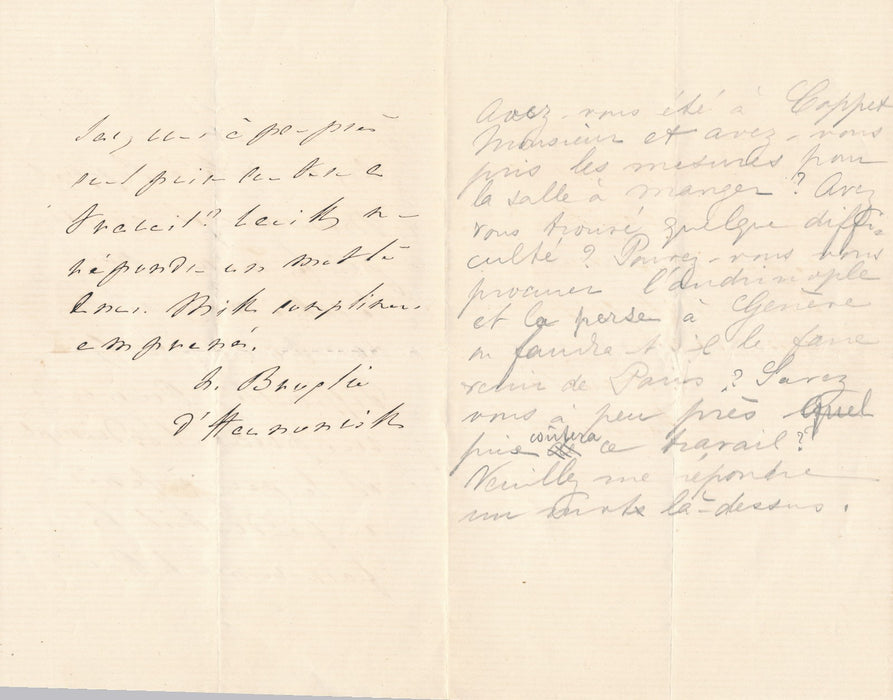 Savez vous à peu près
quel prix coutera ce
travail? Veuillez me
répondre un mot là
dessus. Mille complimens
empressés.
Broglie
d'Haussonville
Avez-vous été à Coppet
Monsieur et avez-vous
pris les mesures pour
la salle à manger? Avez
vous trouvé quelque diffi-
culté? Pouvez-vous vous
procurer l'andrinople
et la perse à Genève
ou faudra t il le faire
venir de Paris? Savez
vous a peu près quel
prix coûtera ce travail?
Veuillez me répondre
un mot là-dessus.